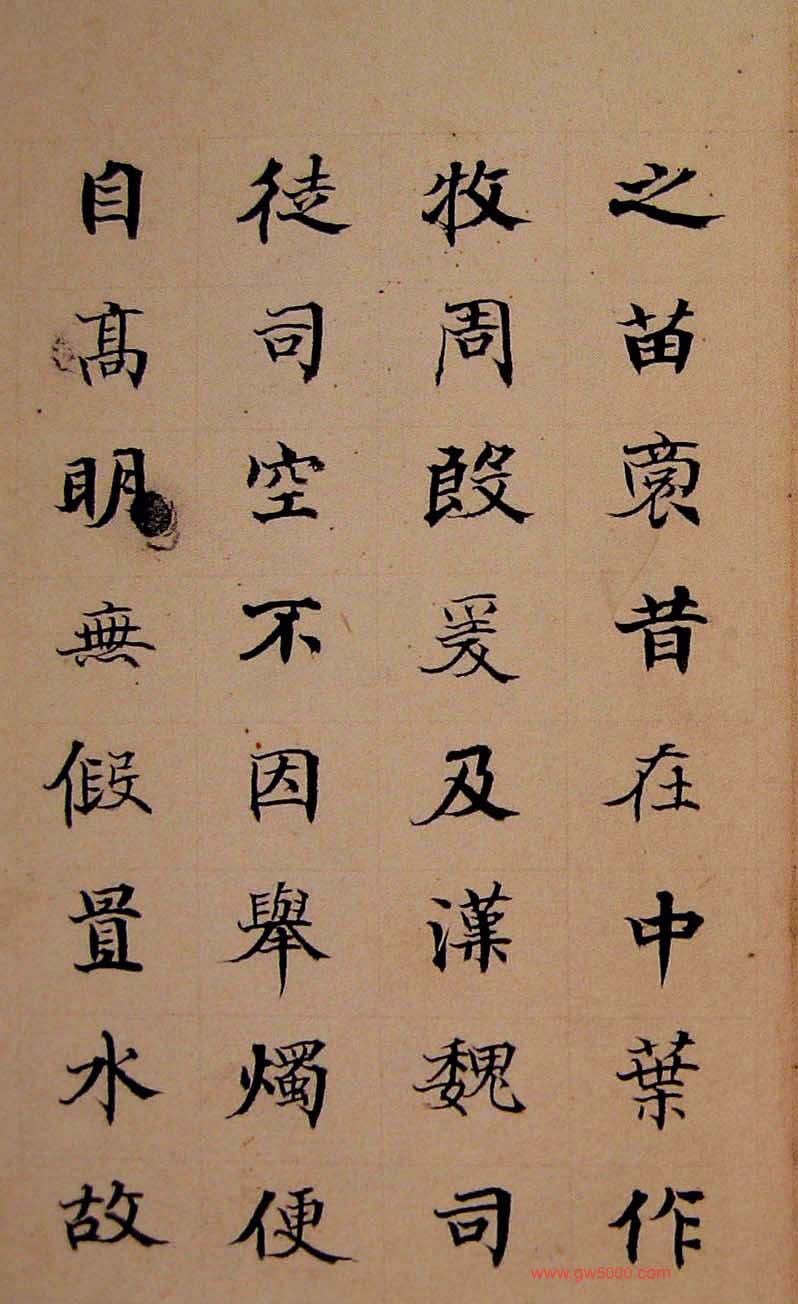 之苗裔昔在中葉作
牧周殷爰及漢魏司
徒司空不因舉燭便
自高明無假置水故
www.gw5000.com